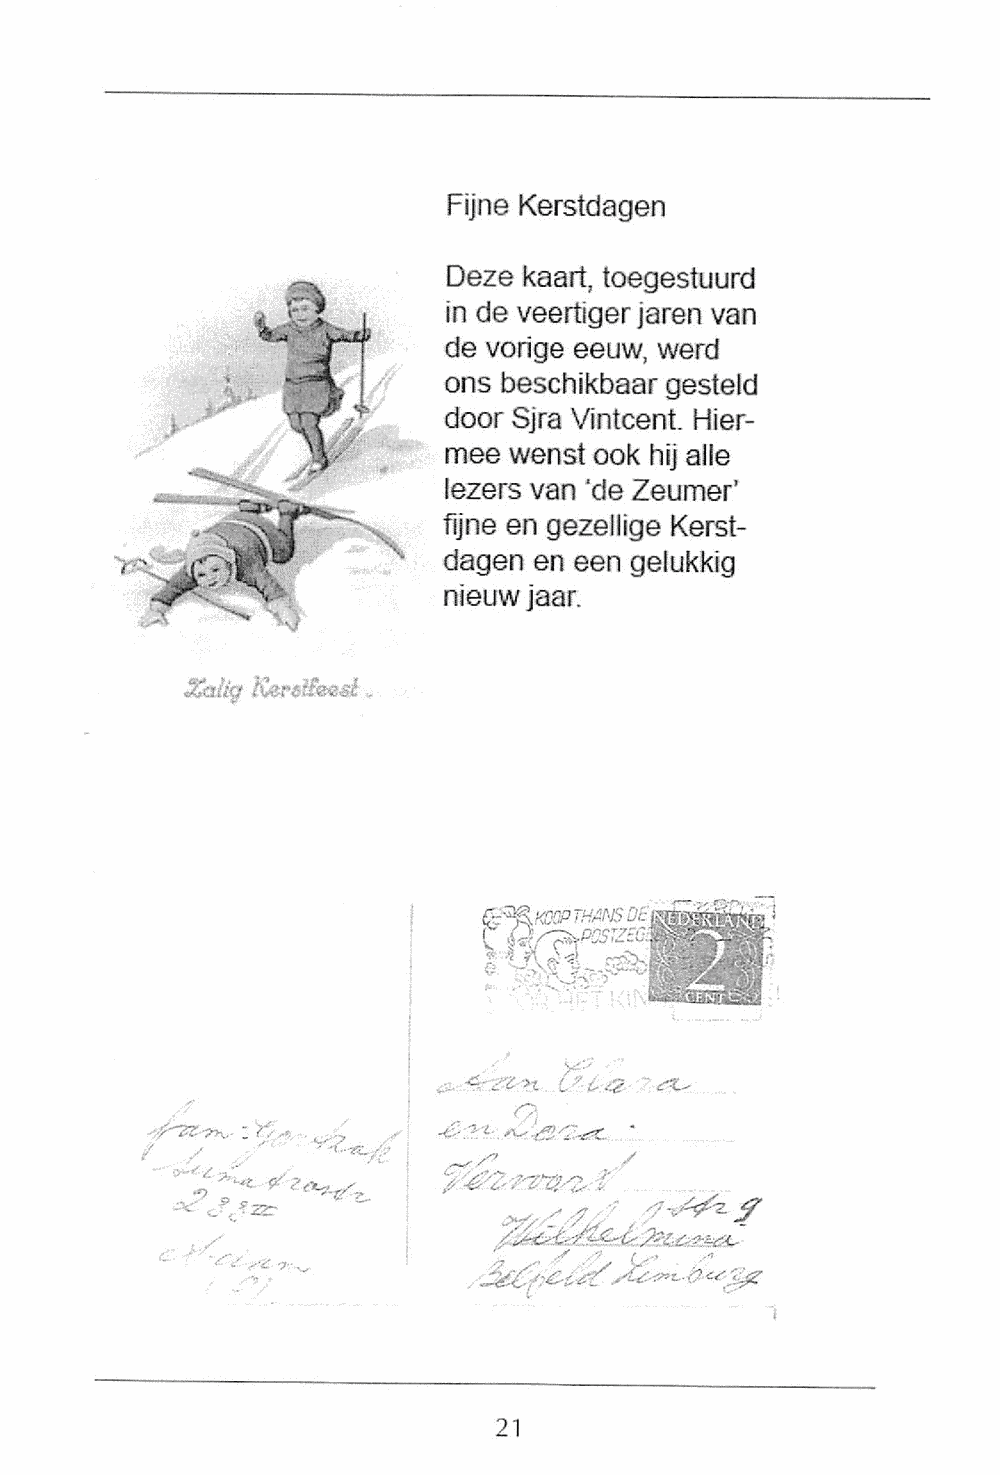 Fijne Kerstdagen
Deze kaart, toegestuurd
in de veertiger jaren van
de vorige eeuw, werd
ons beschikbaar gesteld
door Sjra Vintcent. Hier-
mee wenst ook hij alle
lezers van 'de Zeumer'
fijne en gezellige Kerst-
dagen en een gelukkig
nieuw jaar.
Zalig Kerstfeest
KOOP THANS DE
POSTZEG
HET KIN
NEDERLAND
2
CENT
Aan Clara
en Dora
Vervoort
str 9
Wilhelmina
Belfeld Limburg
fam:
233 III
21